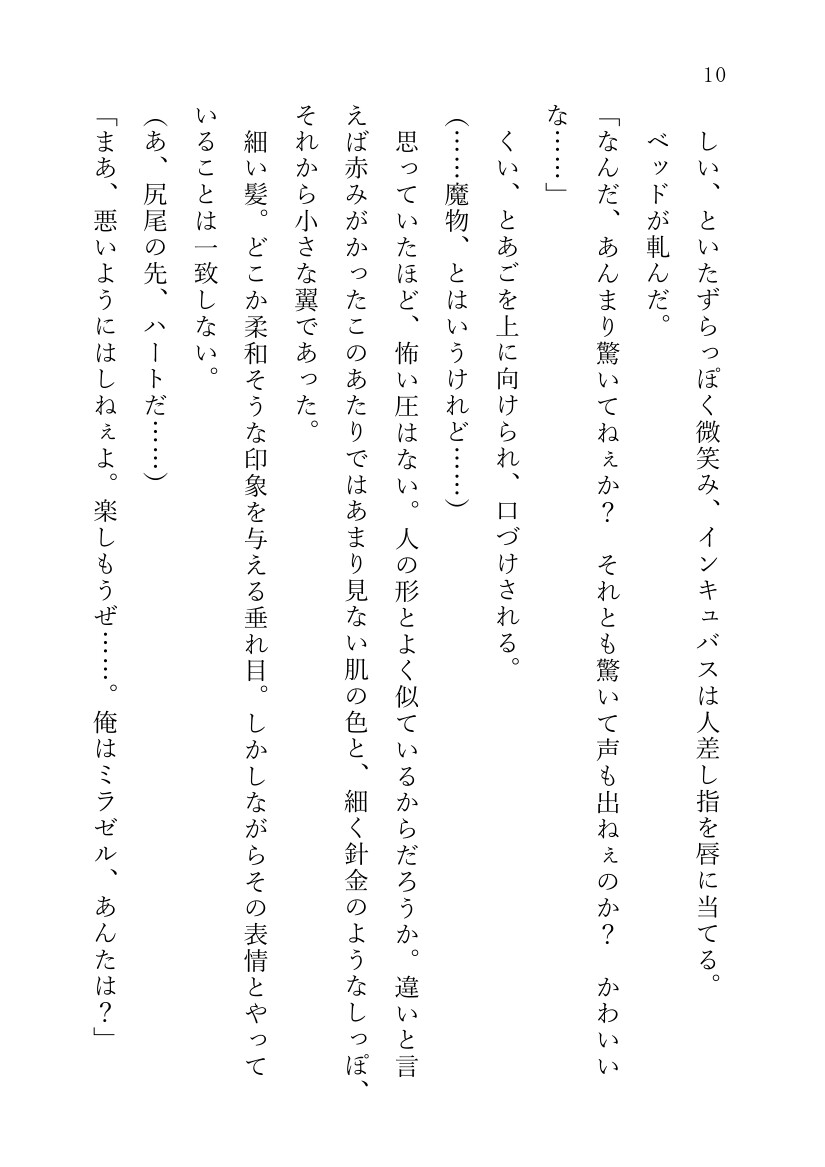 10
しい、といたずらっぽく微笑み、インキュバスは人差し指を唇に当てる。
ベッドが軋んだ。
「なんだ、あんまり驚いてねぇか？　それとも驚いて声も出ねぇのか？　かわいい
な……」
くい、とあごを上に向けられ、口づけされる。
（……魔物、とはいうけれど……）
思っていたほど、怖い圧はない。人の形とよく似ているからだろうか。違いと言
えば赤みがかったこのあたりではあまり見ない肌の色と、細く針金のようなしっぽ、
それから小さな翼であった。
細い髪。どこか柔和そうな印象を与える垂れ目。しかしながらその表情とやって
いることは一致しない。
（あ、尻尾の先、ハートだ……）
「まあ、悪いようにはしねぇよ。楽しもうぜ……。俺はミラゼル、あんたは？」